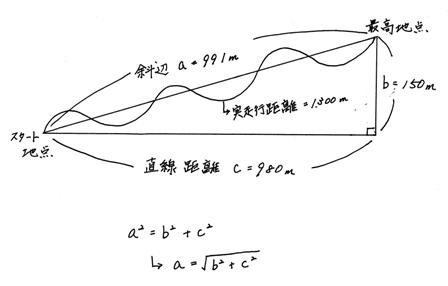 最高地点.
斜辺 a = 991m
b = 150m
↳実走行距離 = 1.300m
スタート
地点.
直線距離 c = 980m
a² = b² + c²
↳ a = √(b² + c²)